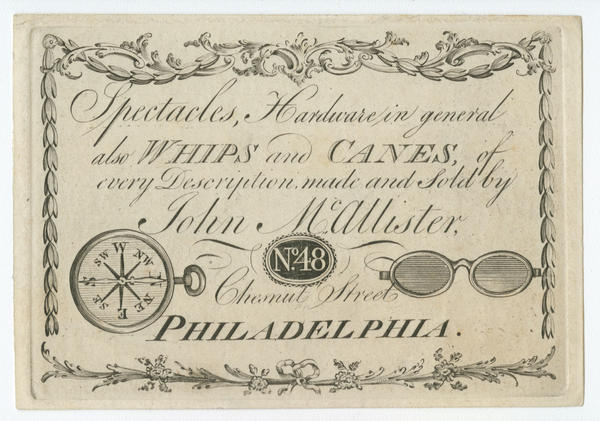 Spectacles, Hardware in general
also WHIPS and CANES, of
every Description, made and Sold by
John McAllister,
No. 48
Chesnut Street
PHILADELPHIA.
W
NW
N
NE
E
SE
S
SW